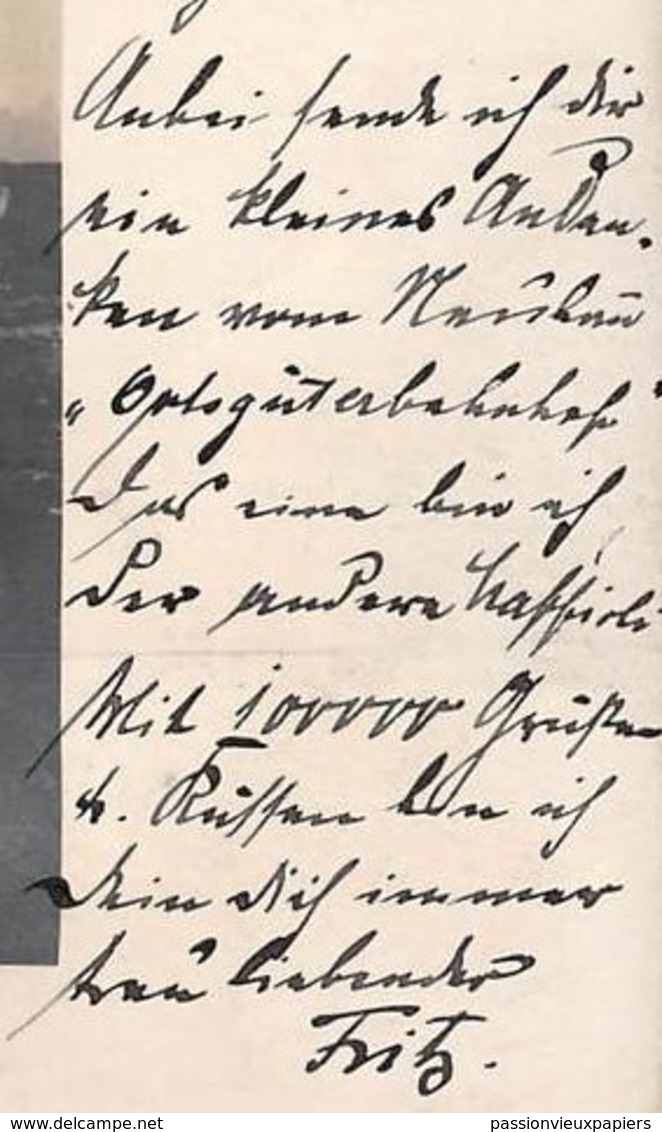 Anbei sende ich dir
ein kleines Anden-
ken vom Neubau
„Ortsgüterbahnhof"
Das eine bin ich
der andere
Mit 100000 Grüßen
u. Küssen bin ich
dein dich immer
treu liebender
Fritz.
www.delcampe.net
passionvieuxpapiers